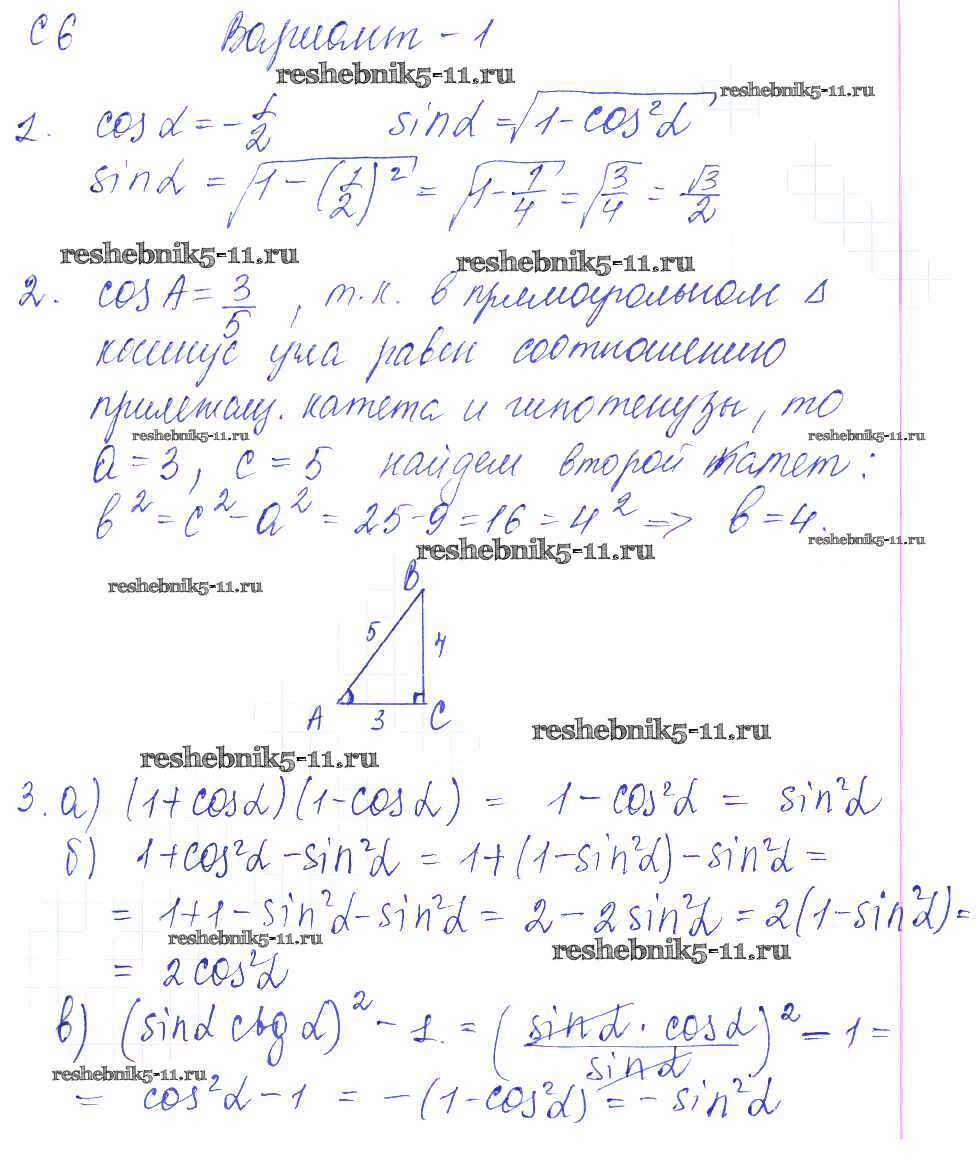 С6 Вариант - 1
reshebnik5-11.ru
reshebnik5-11.ru
1. cos α = -1/2 sin α = √(1 - cos²α)
sin α = √(1 - (1/2)²) = √(1 - 1/4) = √(3/4) = √3/2
reshebnik5-11.ru
reshebnik5-11.ru
2. cos A = 3/5, т.к. в прямоугольном Δ
косинус угла равен соотношению
прилежащ. катета и гипотенузы, то
reshebnik5-11.ru
reshebnik5-11.ru
a = 3, c = 5 найдем второй катет:
в² = c² - a² = 25 - 9 = 16 = 4² => в = 4.
reshebnik5-11.ru
reshebnik5-11.ru
reshebnik5-11.ru
B
5
4
A
3
C
reshebnik5-11.ru
reshebnik5-11.ru
3. а) (1 + cos α)(1 - cos α) = 1 - cos²α = sin²α
б) 1 + cos²α - sin²α = 1 + (1 - sin²α) - sin²α =
= 1 + 1 - sin²α - sin²α = 2 - 2 sin²α = 2(1 - sin²α) =
reshebnik5-11.ru
reshebnik5-11.ru
= 2 cos²α
в) (sin α ctg α)² - 1 = (sin α · cos α / sin α)² - 1 =
reshebnik5-11.ru
= cos²α - 1 = -(1 - cos²α) = - sin²α